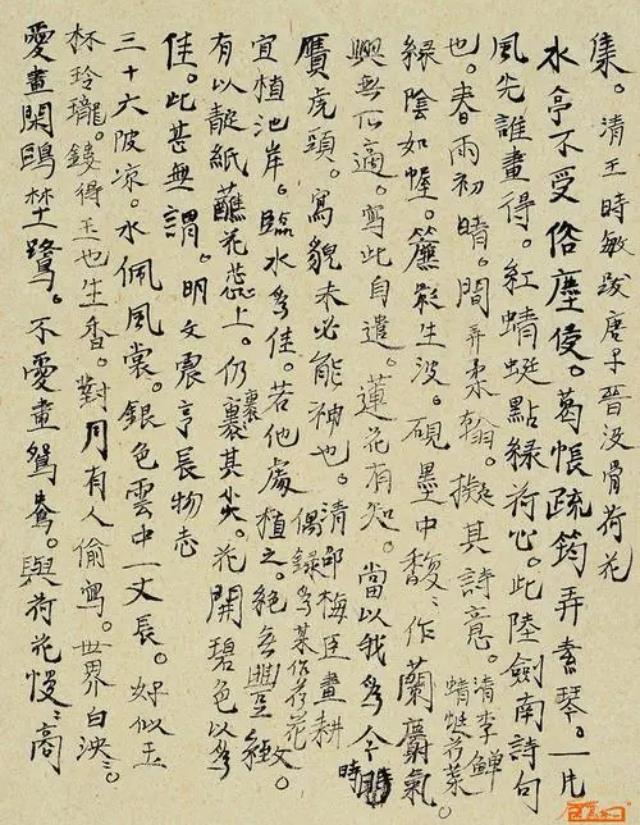 集。清王時敏跋唐子晉没骨荷花
水亭不受俗塵侵。葛帳疏筠弄素琴。一片
風光誰畫得。紅蜻蜓點緑荷心。此陸劍南詩句
也。春雨初晴。間弄柔翰。擬其詩意。清李鱓蜻蜓荷葉。
緑陰如幄。簾影生波。硯墨中馥〻作蘭麝氣。
興無所適。寫此自遣。蓮花有知。當以我為今時
贋虎頭。寫貌未必能神也。清邵梅臣畫耕偶録為某作荷花
宜植池岸。臨水為佳。若他處植之。絶無豐致。
有以靛紙蘸花蕊上。仍裹其尖。花開碧色以為
佳。此甚無謂。明文震亨長物志
三十六陂凉。水佩風裳。銀色雲中一丈長。好似玉
杯玲瓏。鏤得玉也生香。對月有人偷寫。世界白泱〻。
愛畫閑鷗埜鷺。不愛畫鴛鴦。與荷花慢〻商